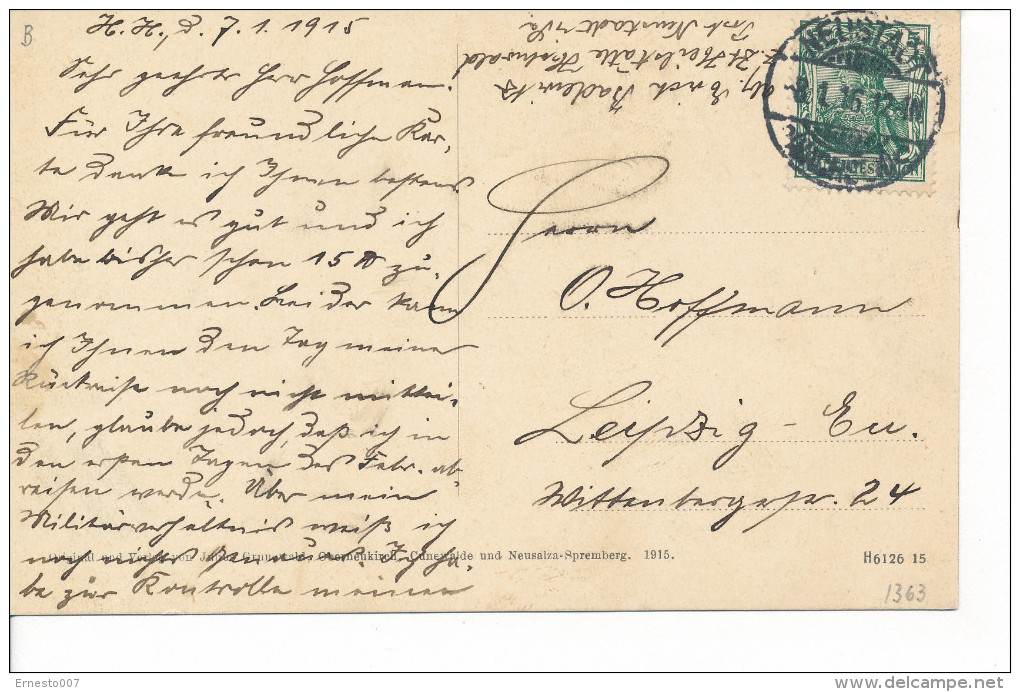 B
H. H., d. 7.1.1915
Sehr geehrter Herr Hoffmann.
Für Ihre freundliche Kar-
te danke ich Ihnen bestens
Mir geht es gut und ich
habe bisher schon 15 ℔ zu-
genommen. Leider kann
ich Ihnen den Tag meiner
Rückreise noch nicht mittei-
len, glaube jedoch, daß ich in
den ersten Tagen des Febr. ab
reisen werde. Über mein
Militärverhältnis weiß ich
noch nichts genaues. Ich ha-
be zur Kontrolle meinen
Abs. Erich
z. Zt. Heilstätte Hohwald
Post Neustadt i/Sa
NEUSTADT
8.1.15.
Herrn
O. Hoffmann
Leipzig - Eu.
Wittenbergerstr. 24
Original und Verlag von Oberneukirch, Cunewalde und Neusalza-Spremberg. 1915.
H6126 15
1363
Ernesto007
delcampe.net